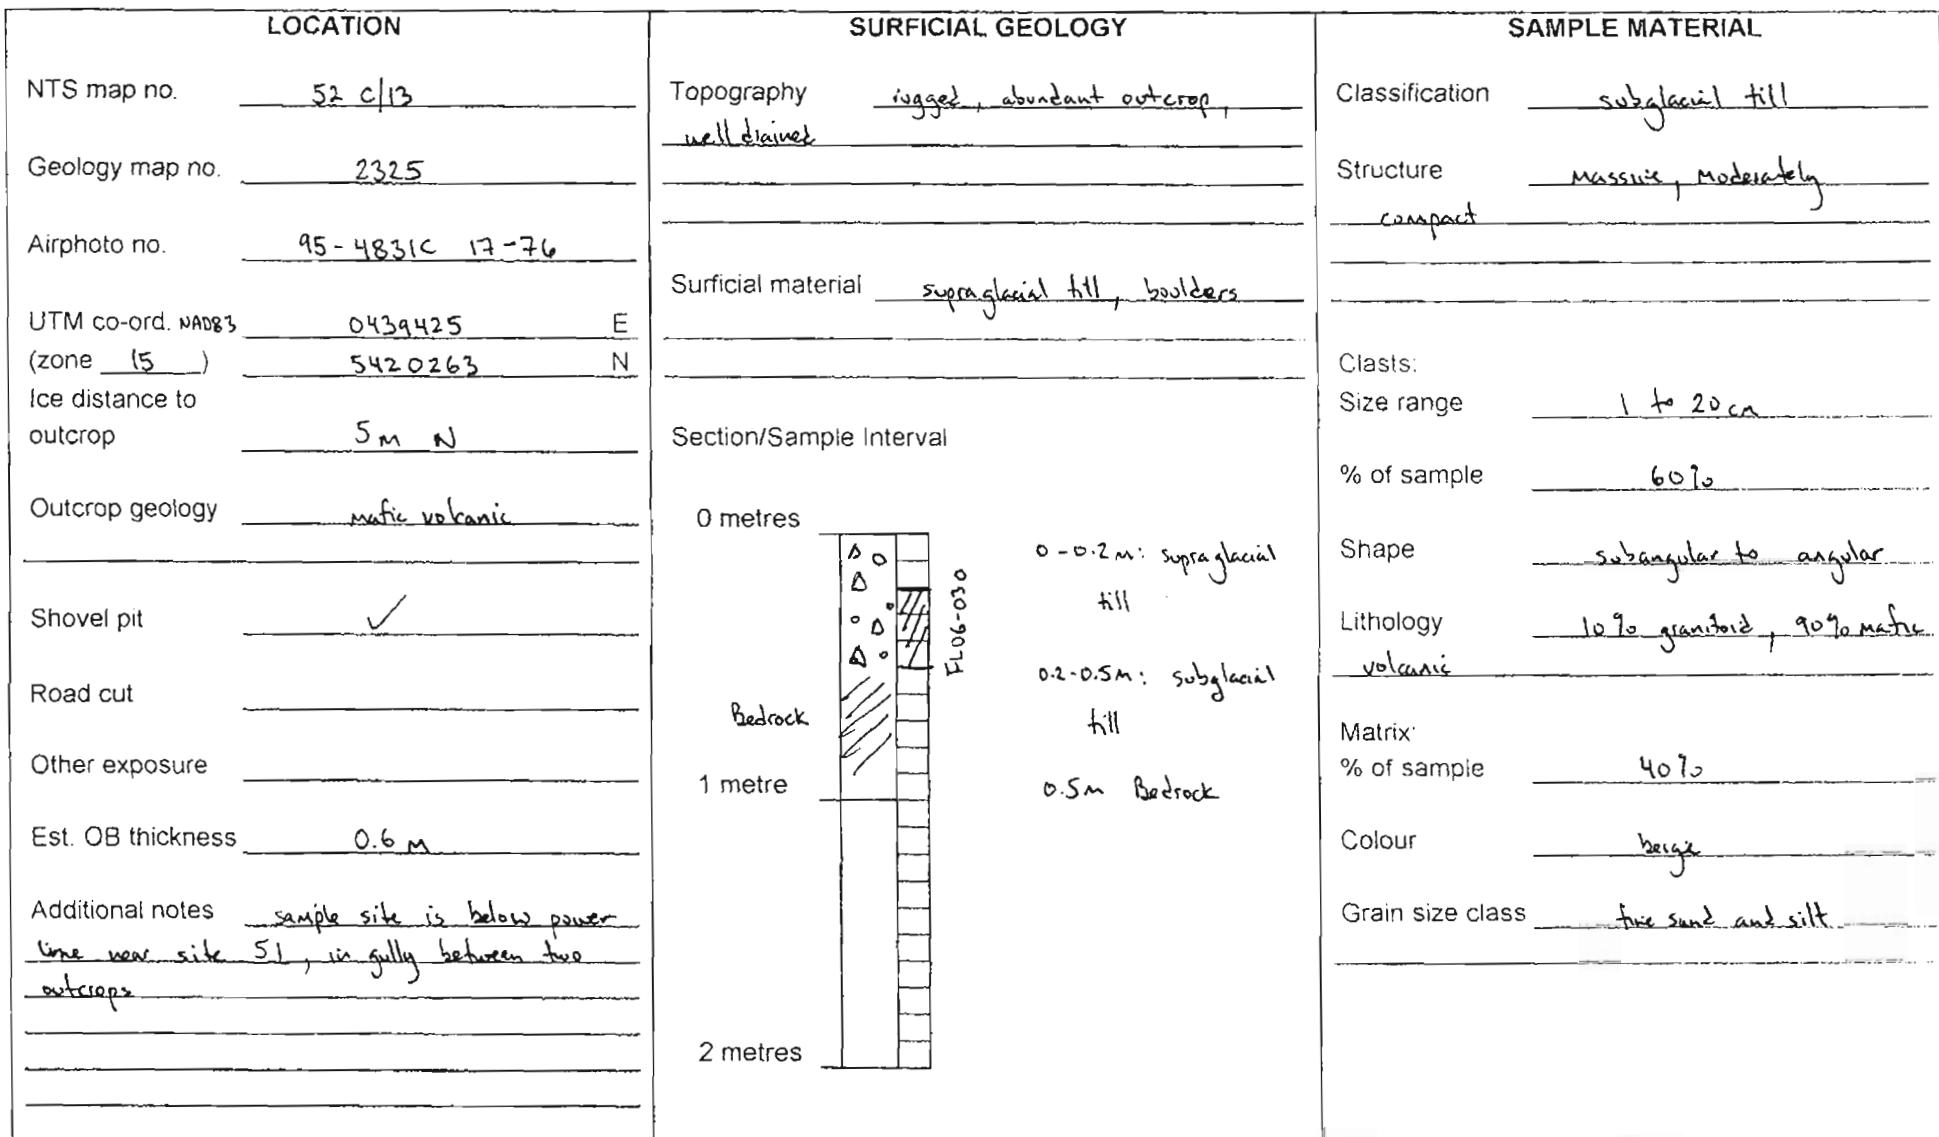 LOCATION
NTS map no. 52 C/13
Geology map no. 2325
Airphoto no. 95-4831C 17-76
UTM co-ord. NAD83 0439425 E
(zone 15) 5420263 N
Ice distance to
outcrop 5m N
Outcrop geology mafic volcanic
Shovel pit ✓
Road cut
Other exposure
Est. OB thickness 0.6 m
Additional notes sample site is below power
line near site 51, in gully between two
outcrops
SURFICIAL GEOLOGY
Topography rugged, abundant outcrop,
well drained
Surficial material supraglacial till, boulders
Section/Sample Interval
0 metres
0-0.2m: supraglacial
till
FL06-030
0.2-0.5m: subglacial
till
Bedrock
1 metre
0.5m Bedrock
2 metres
SAMPLE MATERIAL
Classification subglacial till
Structure Massive, Moderately
compact
Clasts:
Size range 1 to 20 cm
% of sample 60%
Shape subangular to angular
Lithology 10% granitoid, 90% mafic
volcanic
Matrix:
% of sample 40%
Colour beige
Grain size class fine sand and silt